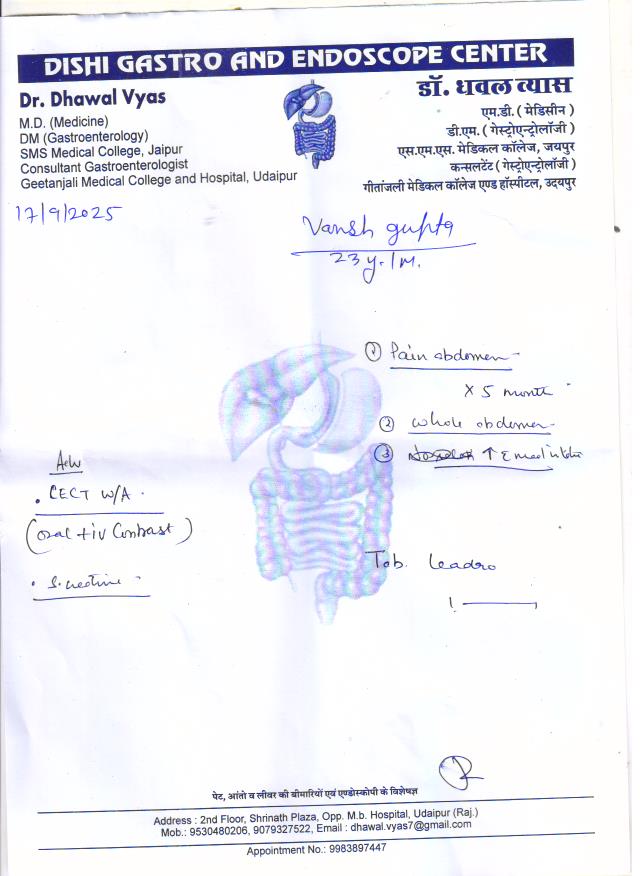 DISHI GASTRO AND ENDOSCOPE CENTER
Dr. Dhawal Vyas
M.D. (Medicine)
DM (Gastroenterology)
SMS Medical College, Jaipur
Consultant Gastroenterologist
Geetanjali Medical College and Hospital, Udaipur
डॉ. धवल व्यास
एम.डी. ( मेडिसीन )
डी.एम. ( गेस्ट्रोएन्ट्रोलॉजी )
एस.एम.एस. मेडिकल कॉलेज, जयपुर
कन्सलटेंट ( गेस्ट्रोएन्ट्रोलॉजी )
गीतांजली मेडिकल कॉलेज एण्ड हॉस्पीटल, उदयपुर
17/9/2025
Vansh gupta
23 y. / M.
① Pain abdomen
x 5 month
② whole abdomen
③ ↑
Adv
. CECT W/A .
(Oral + iv Contrast)
. S. creatine
Tab. Leadro
1
पेट, आंतो व लीवर की बीमारियों एवं एण्डोस्कोपी के विशेषज्ञ
Address : 2nd Floor, Shrinath Plaza, Opp. M.b. Hospital, Udaipur (Raj.)
Mob.: 9530480206, 9079327522, Email : dhawal.vyas7@gmail.com
Appointment No.: 9983897447